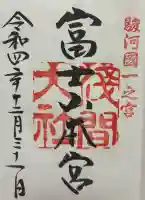 駿河國一之宮
富士山本宮
浅間
大社
令和四年十二月三十一日